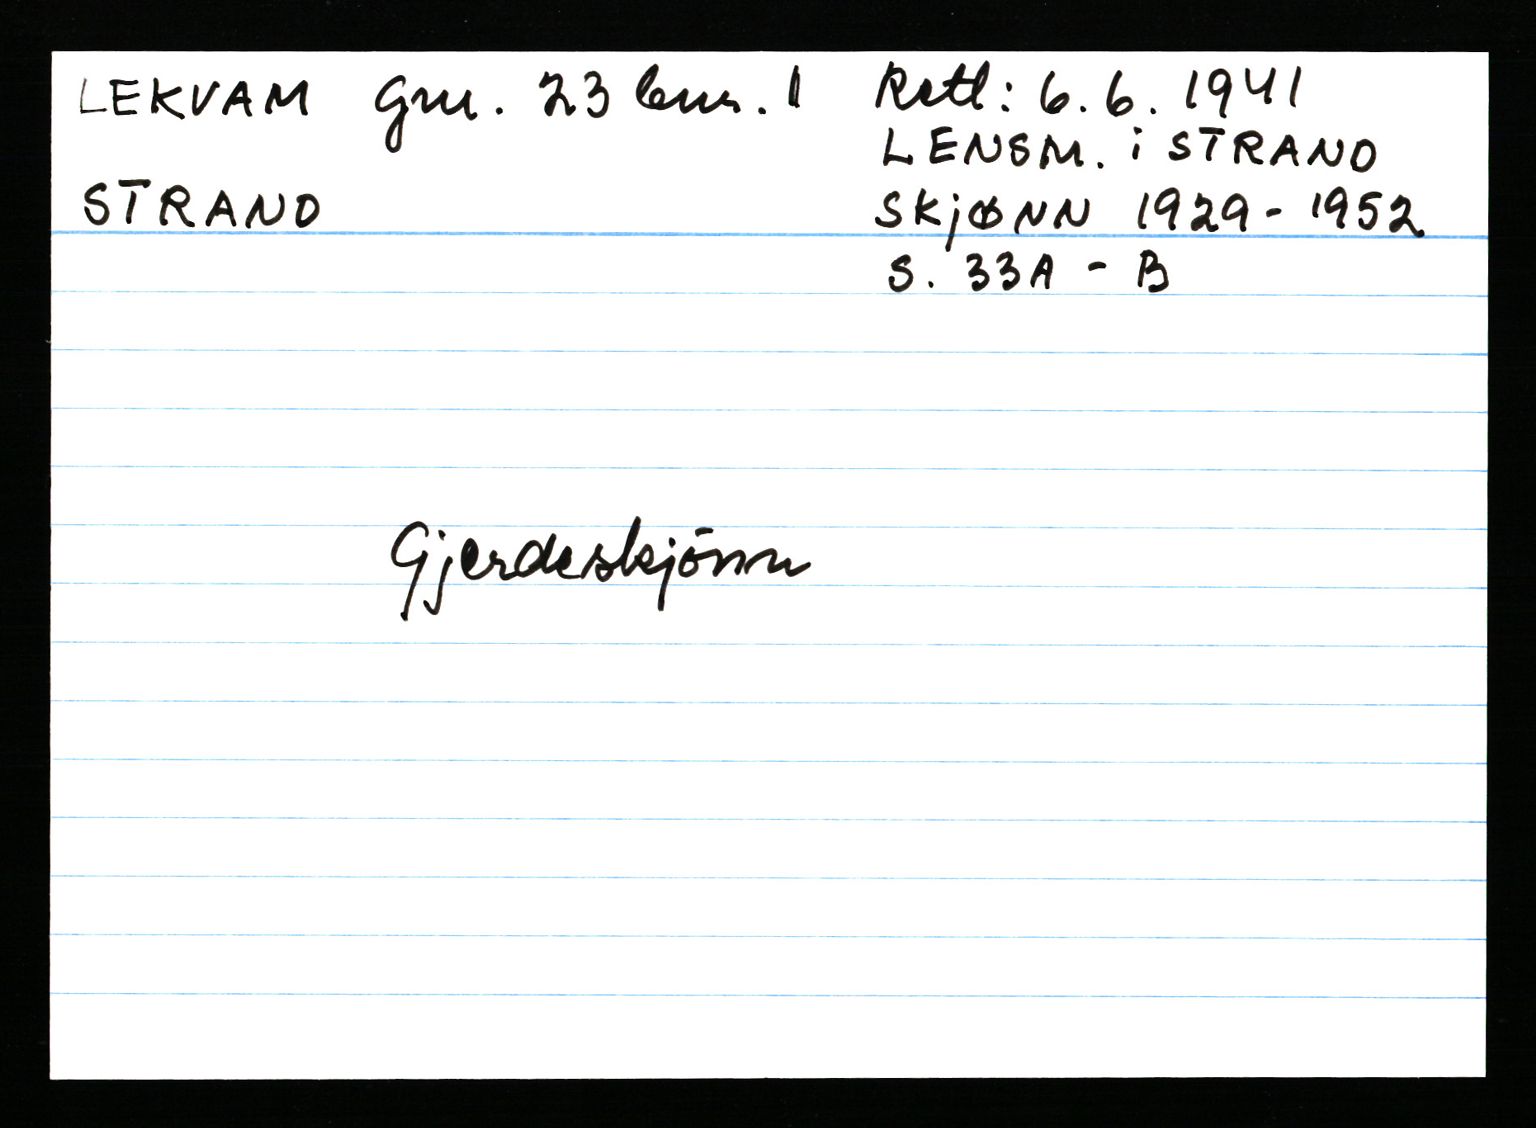 LEKVAM Gnr. 23 bnr. 1 Rettl: 6.6.1941
LENSM. i STRAND
STRAND SKjØNN 1929-1952
S. 33A - B
Gjerdeskjönn